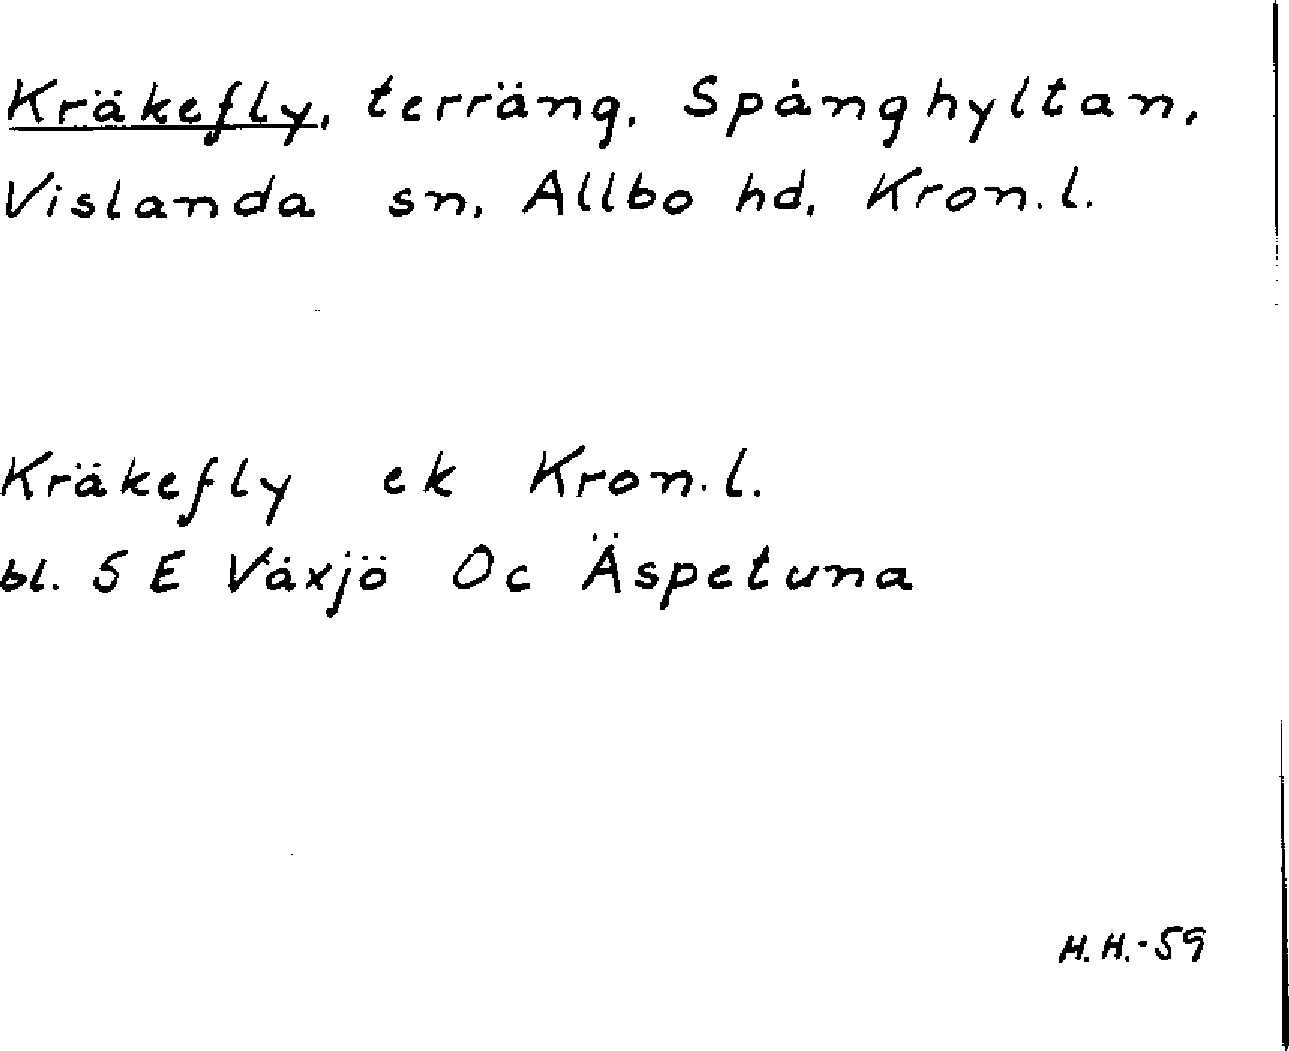 Kräkefly, terräng, Spånghyltan,
Vislanda sn, Allbo hd, Kron. l.
Kräkefly ek Kron. l.
bl. 5 E Växjö Oc Äspetuna
H. H. -59